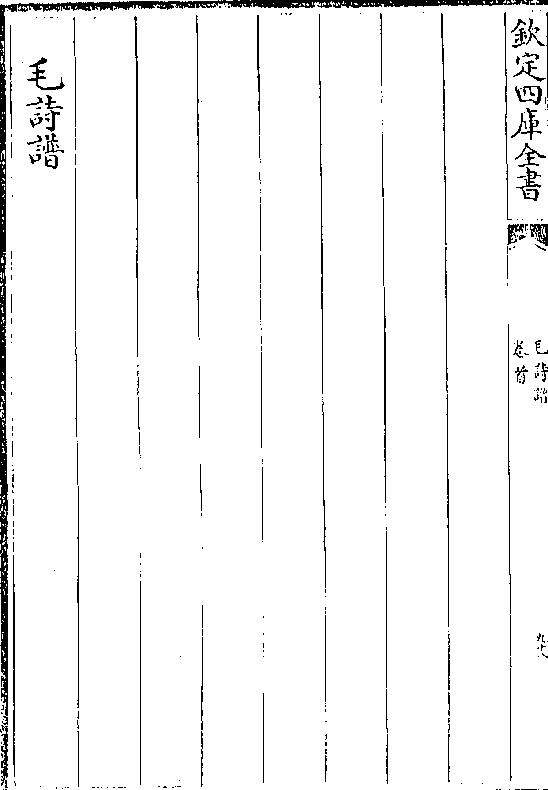 欽定四庫全書
毛詩譜
卷首
毛詩譜